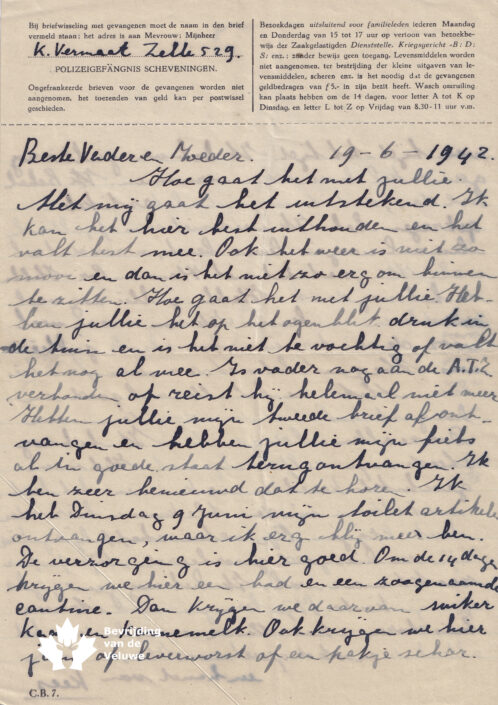 Bij briefwisseling met gevangenen moet de naam in den brief
vermeld staan: het adres is aan Mevrouw: Mijnheer
K. Vermaat Zelle 529.
POLIZEIGEFÄNGNIS SCHEVENINGEN.
Ongefrankeerde brieven voor de gevangenen worden niet
aangenomen, het toezenden van geld kan per postwissel
geschieden.
Bezoekdagen uitsluitend voor familieleden iederen Maandag
en Donderdag van 15 tot 17 uur op vertoon van bezoekbe-
wijs der Zaakgelastigden Dienststelle. Kriegsgericht -B: D:
S: enz.: zonder bewijs geen toegang. Levensmiddelen worden
niet aangenomen, ter bestrijding der kleine uitgaven van le-
vensmiddelen, scheren enz. is het noodig dat de gevangenen
geldbedragen van f 5.- in zijn bezit heeft. Wasch omruiling
kan plaats hebben om de 14 dagen, voor letter A tot K op
Dinsdag, en letter L tot Z op Vrijdag van 8.30-11 v.m.
Beste Vader en Moeder. 19-6-1942.
Hoe gaat het met jullie.
Met mij gaat het uitstekend. Ik
kan het hier best uithouden en het
valt best mee. Ook het weer is niet zo
mooi en dan is het niet zo erg om binnen
te zitten. Hoe gaat het met jullie. Heb-
ben jullie het op het ogenblik druk in
de tuin en is het niet te vochtig of valt
het nog al mee. Is vader nog aan de A.T.
verbonden of reist hij helemaal niet meer
Hebben jullie mijn tweede brief af ont-
vangen en hebben jullie mijn fiets
al in goede staat terug ontvangen. Ik
ben zeer benieuwd dat te horen. Ik
heb Dinsdag 9 Juni mijn toilet artikelen
ontvangen, waar ik erg blij meer ben.
De verzorging is hier goed. Om de 14 dagen
krijgen we hier een bad en een zoogenaamde
cantine. Dan krijgen we daar van suiker
Ook krijgen we hier
leverworst of een pakje
Bevrijding
van de
Veluwe
C.B. 7.